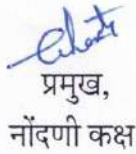 प्रमुख,
नोंदणी कक्ष